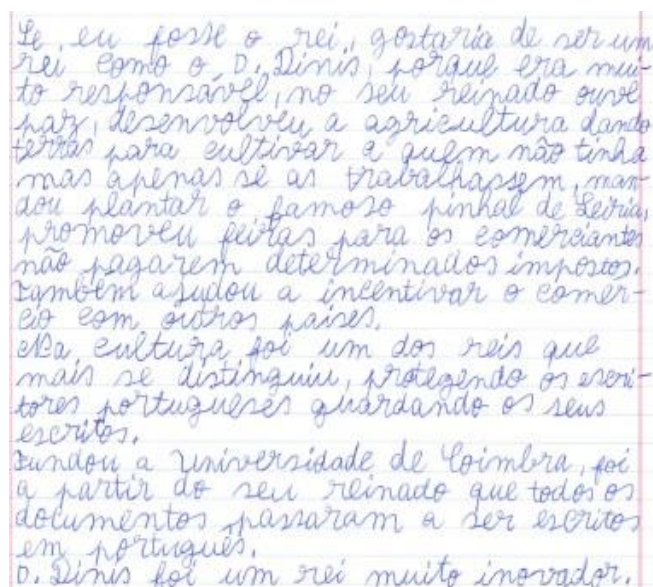 Se, eu fosse o rei, gostaria de ser um
rei como o, D. Dinis, porque era mui-
to responsável, no seu reinado ouve
paz, desenvolveu a agricultura dando
terras para cultivar a quem não tinha
mas apenas se as trabalhassem, man-
dou plantar o famoso pinhal de Leiria,
promoveu feiras para os comerciantes
não pagarem determinados impostos.
Também ajudou a incentivar o comer-
cio com outros países.
Na cultura foi um dos reis que
mais se distinguiu, protegendo os escri-
tores portugueses guardando os seus
escritos.
Fundou a Universidade de Coimbra, foi
a partir do seu reinado que todos os
documentos passaram a ser escritos
em português.
D. Dinis foi um rei muito inovador.